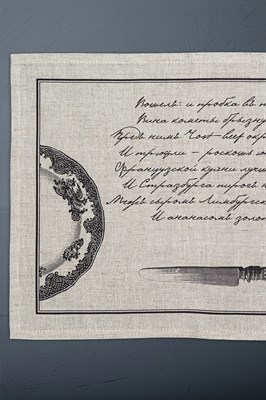 Вошелъ: и пробка въ п
Вина кометы брызну
Предъ нимъ Rost-beef окр
И трюфли – роскошь ю
Французской кухни лучш
И Стразбурга пирогъ н
Межъ сыромъ Лимбургск
И ананасомъ золо